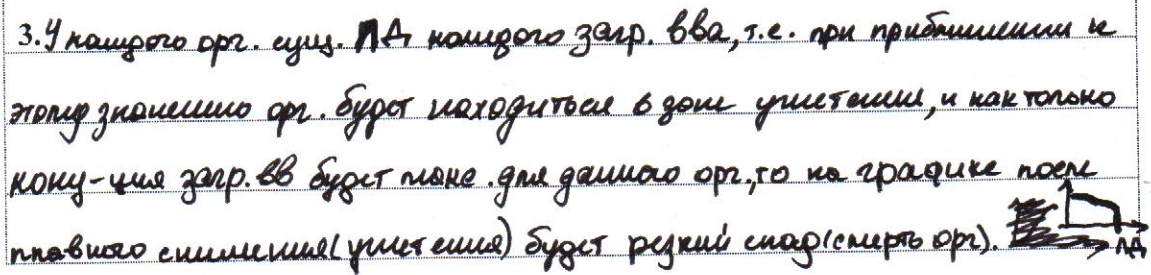 3. У каждого орг. сущ. ПД каждого загр. вва, т.е. при приближении к
этому значению орг. будет находиться в зоне угнетения, и как только
конц-ция загр. вв будет макс. для данного орг., то на графике после
плавного снижения (угнетения) будет резкий спад (смерть орг).
ПД